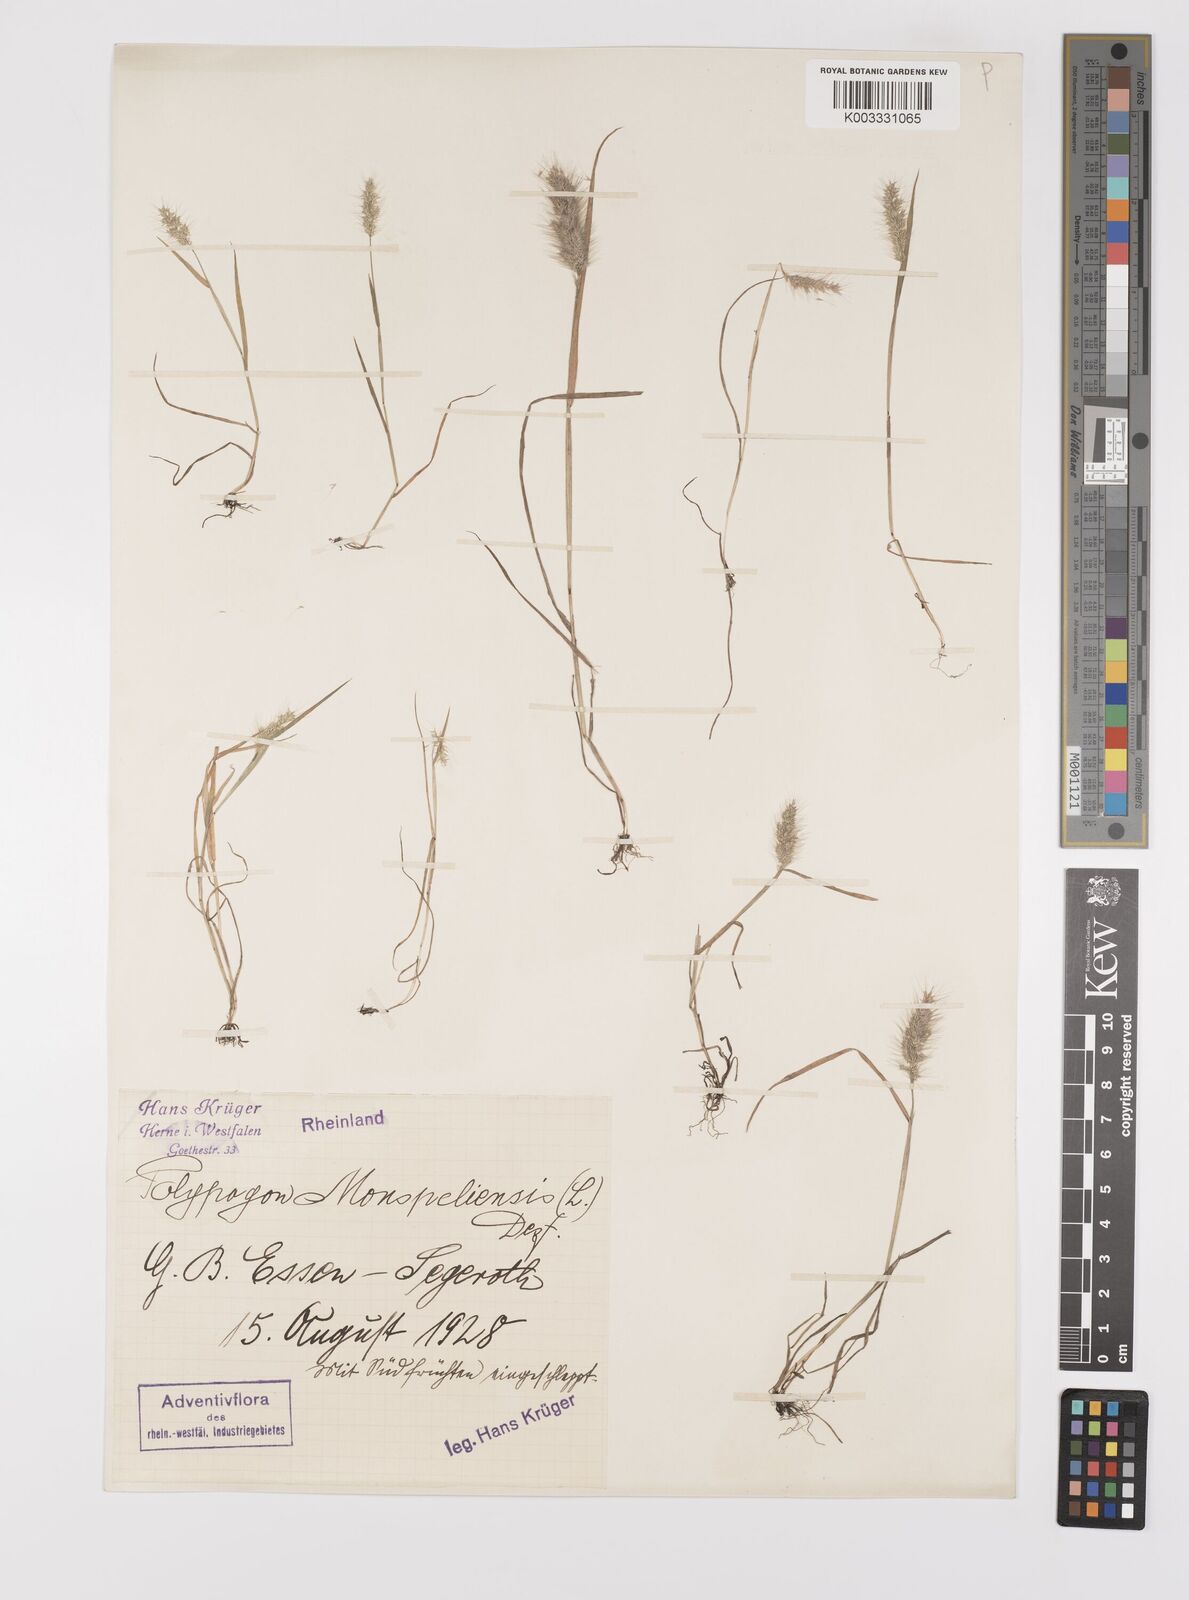 ROYAL BOTANIC GARDENS KEW
K003331065
P
Hans Krüger
Herne i. Westfalen
Goethestr. 33
Rheinland
Polypogon Monspeliensis (L.)
Desf.
G. B. Essen - Segeroth
15. August 1928
Mit Südfrüchten eingeschleppt.
Adventivflora
des
rhein.-westfäl. Industriegebietes
leg. Hans Krüger
inches
Density
Don Williams
M001121
centimeters
Kew
Royal Botanic Gardens
copyright reserved
0 1 2 3 4 5 6 7 8 9 10
cm